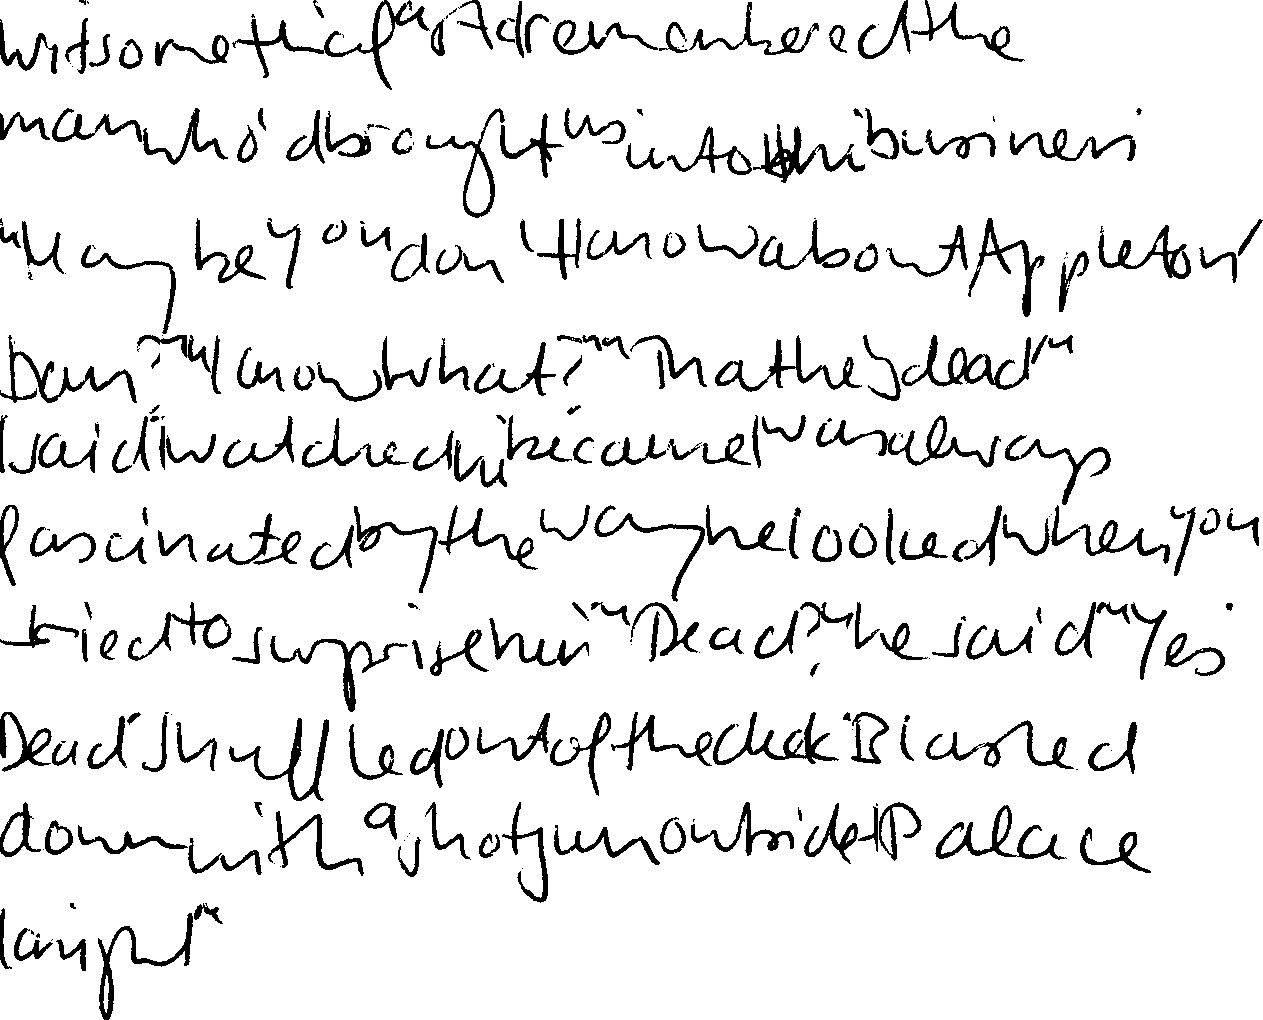 with something fast. I'd remembered the
man who'd brought us into this business.
"Maybe you don't know about Appleton,
Dan?" "Know what?" "That he's dead,"
I said. I watched him because I was always
fascinated by the way he looked when you
tried to surprise him. "Dead?" he said. "Yes.
Dead. Shuffled out of the deck. Blasted
down with a shotgun outside Palace
last night."